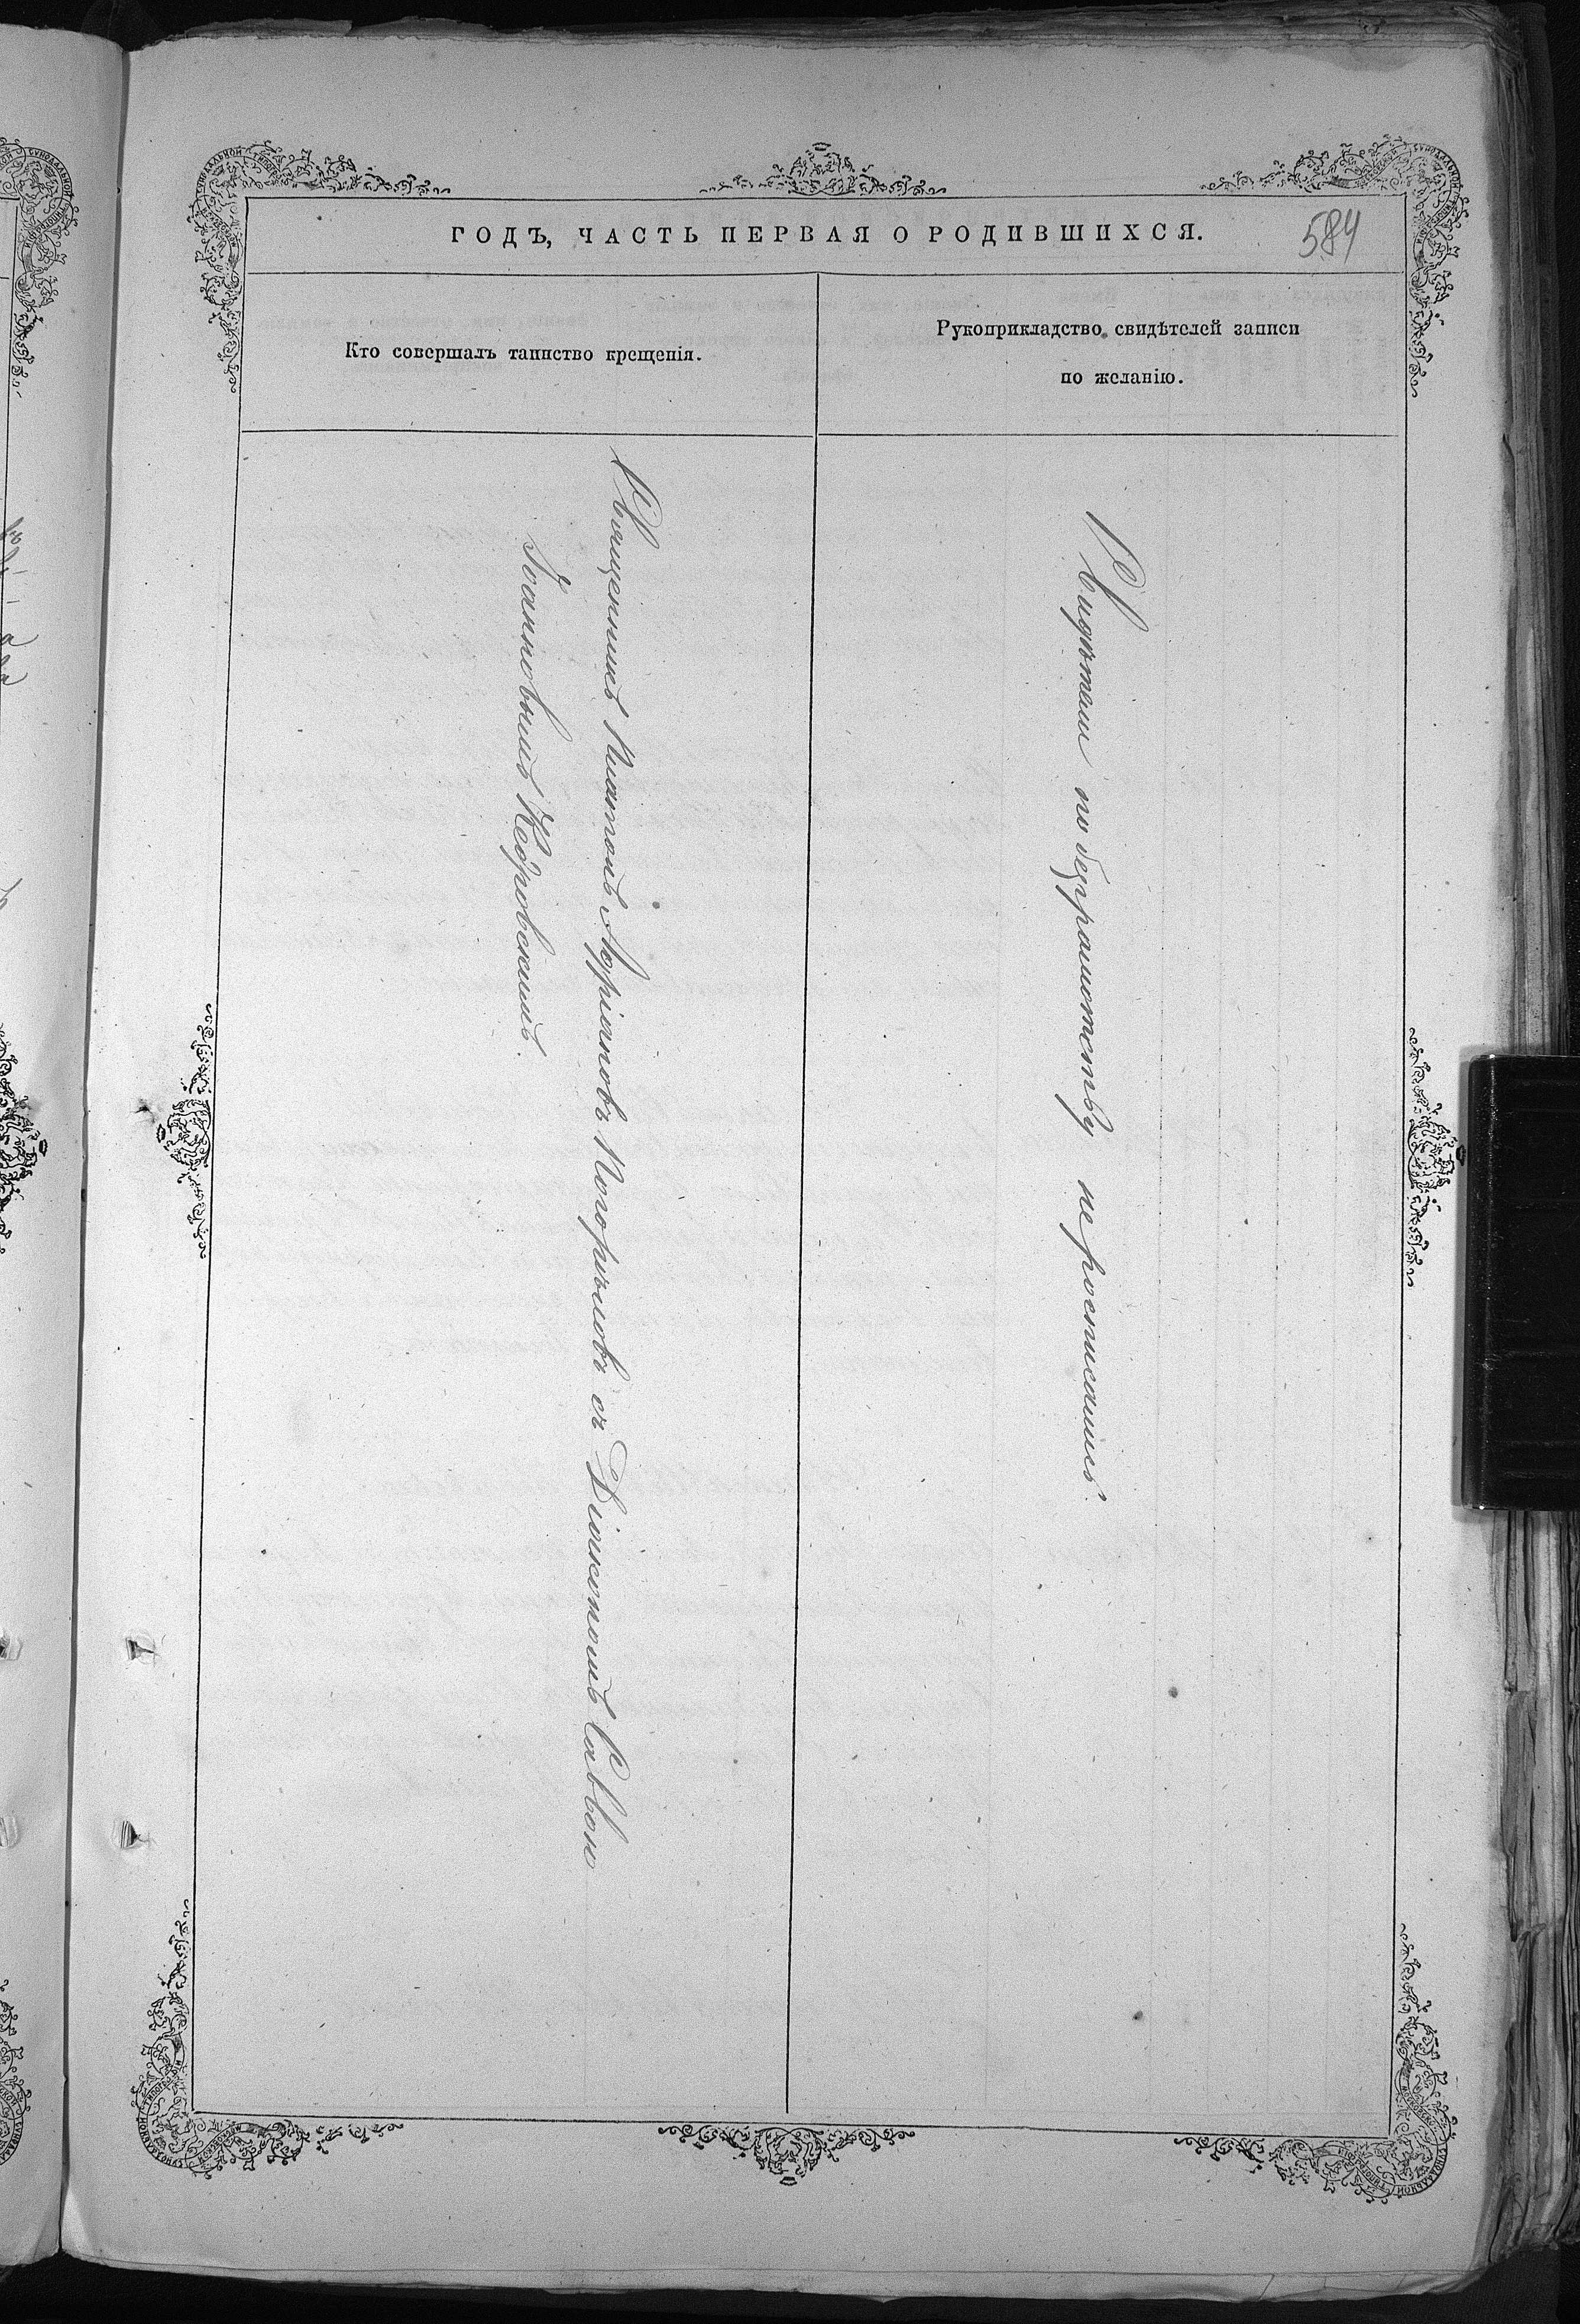 ГОДЪ, ЧАСТЬ ПЕРВАЯ О РОДИВШИХСЯ.
584
Кто совершалъ таинство крещенія.
Рукоприкладство свидѣтелей записи
по желанію.
Священникъ Платонъ Адріановъ Погорѣловъ съ Діакономъ Саввою
Іоанновымъ Кедровскимъ.
Свидѣтели по безграмотству не росписались.